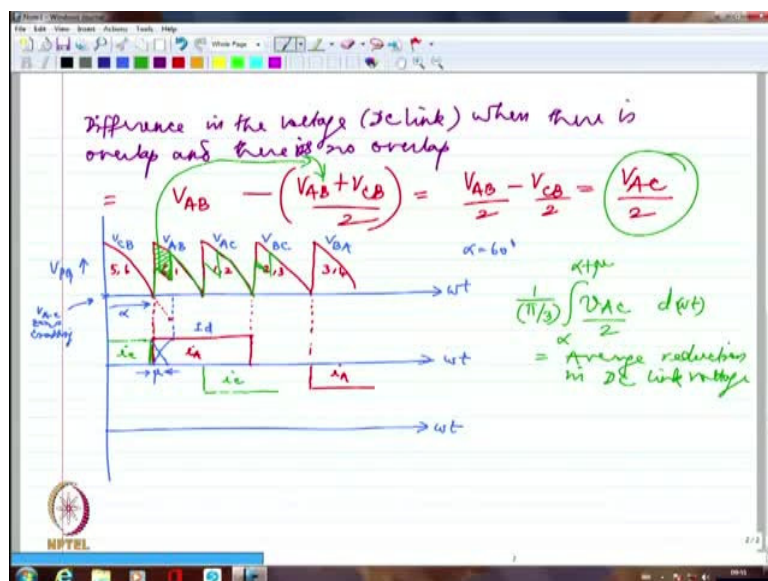 Note1 - Windows Journal
File Edit View Insert Actions Tools Help
Whole Page
Difference in the voltage (DC link) when there is
overlap and there is no overlap
= V_AB - (V_AB + V_CB / 2) = V_AB/2 - V_CB/2 = V_AC/2
V_CB V_AB V_AC V_BC V_BA
α=60°
V_PQ ↑
5,6 6,1 1,2 2,3 3,4
ωt
V_AC zero crossing
α
1/(π/3) ∫ α α+μ V_AC/2 d(ωt)
= Average reduction
in DC link voltage
Id
i_c i_A
ωt
μ
i_c i_A
ωt
NPTEL
2/2